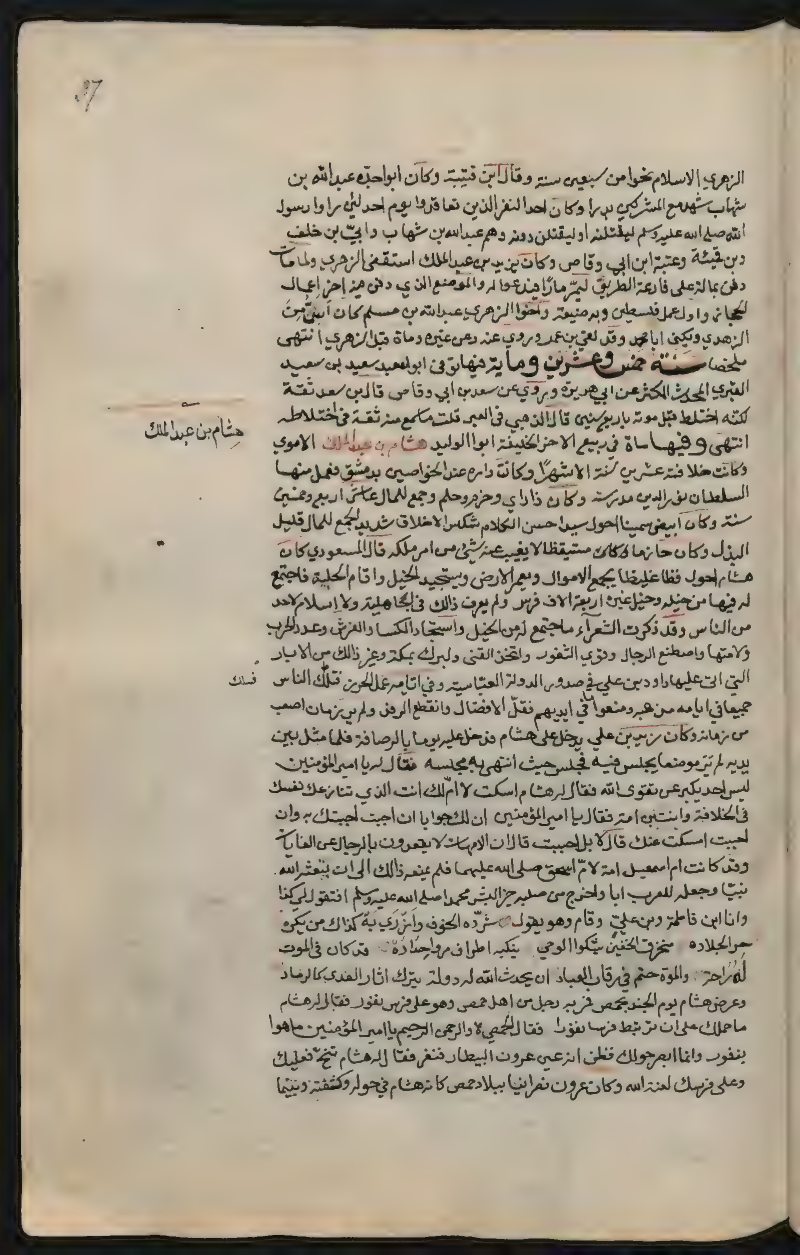 87
الزهري الاسلام نحوا من سبعين سنة وقال ابن قتيبة وكان ابو اجده عبدالله بن
شهاب شهد مع المشركين بدرا وكان احد النفر الذين تعاقدوا يوم احد لئن راوا رسول
الله صلى الله عليه وسلم ليقتلنه او ليقتلن دونه وهم عبدالله بن شهاب وابيّ بن خلف
وبن قيئة وعتبة ابن ابي وقاص وكان يزيد بن عبد الملك استقضى الزهري ولما مات
دفن بماله على قارعة الطريق ليمر مارّا فيدعوا له والموضع الذي دفن فيه اخر اعمال
الحجاز واول عمل فلسطين وبه ضيعته واخوا الزهري عبدالله بن مسلم كان اسنّ من
الزهري ويكنى ابا محمد وقد لقي بن عمر وروي عنه وعن غيره ومات قبل الزهري انتهى
ملخصا سنة خمس وعشرين وماية فيها توفى ابو سعيد سعيد بن ابي سعيد
المقبري المحدث المكثر عن ابي هريرة وروي عن سعد بن ابي وقاص قال بن سعد ثقة
لكنه اختلط قبل موته باربع سنين قال الذهبي في العبر قلت ما سمع منه ثقة في اختلاطه
انتهى وفيها مات في ربيع الاخر الخليفة ابوا الوليد هشام بن عبد الملك الاموي
هشام بن عبد الملك
وكانت خلافته عشرين سنة الا شهرا وكانت داره عند الخواصين بدمشق فعمل منها
السلطان نور الدين مدرسة وكان ذا راي وحزم وحلم وجمع للمال عاش اربع وخمسين
سنة وكان ابيض سمينا احول سيدا حسن الكلام شكس الاخلاق شديد الجمع للمال قليل
البذل وكان حازما متيقظا لا يغيب عنه شئ من امر ملكه قال المسعودي كان
هشام احول فظا غليظا يجمع الاموال ويعمر الارض ويستجيد الخيل واقام الحلبة فاجتمع
له فيها من خيله وخيل غيره اربعة الاف فرس ولم يعرف ذالك في الجاهلية ولا اسلام لاحد
من الناس وقد ذكرت الشعراء ما اجتمع له من الخيل واستجاد الكسا والفرش وعدد الحرب
ولامتها واصطنع الرجال وقوي الثغور واتخذ القنى والبرك بمكة وغير ذالك من الابار
التي اتى عليها داود بن علي في صدور الدولة العباسية وفي ايامه عمل الخز فسلك الناس
فسلك
جميعا في ايامه مذهبه ومنعوا ما في ايديهم فقلّ الافضال وانقطع الرفد ولم ير زمان اصعب
من زمانه وكان زيد بن علي يدخل على هشام فدخل عليه يوما بالرصافة فلما مثل بين
يديه لم يرَ موضعا يجلس فيه فجلس حيث انتهى به مجلسه فقال له يا امير المؤمنين
ليس احد يكبر عن تقوى الله فقال له هشام اسكت لا امّ لك انت الذي تنازعك نفسك
في الخلافة وانت بن امة فقال يا امير المؤمنين ان لك جوابا ان احببت اجبتك به وان
احببت امسكت عنك قال لا بل اجب قال ان الامهات لا يقعدون بالرجال عن الغايات
وقد كانت ام اسمعيل امة لامّ اسحق صلى الله عليهما فلم يمنعه ذالك الى ان بعثه الله
نبيّا وجعله للعرب ابا واخرج من صلبه خير البشر محمدا صلى الله عليه وسلم افتقول لي كذا
وانا ابن فاطمة وبن عليّ وقام وهو يقول شرّده الخوف وازري به كذاك من يكره
حر الجلاد منخرق الخفين يشكوا الوجى ينكبه اطراف مرو حداده قد كان في الموت
له راحة والموت حتم في رقاب العباد ان يحدث الله له دولة يترك اثار العدى كالرماد
وعرض هشام يوم الجند بحمص فمر به رجل من اهل حمص وهو على فرس نفور فقال له هشام
ما حملك على ان ترتبط فرسا نفورا فقال الحمصي لا والرحمن الرحيم يا امير المؤمنين ما هوا
بنفور وانما ابصر حولك فظن انه عين عرون البيطار فنفر فقال له هشام تنحّ فعليك
وعلى فرسك لعنة الله وكان عرون نصرانيا ببلاد حمص كانه هشام في حوله وكشفته وبينما